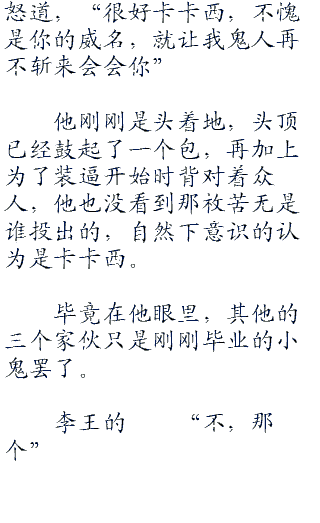 怒道，“很好卡卡西，不愧
是你的威名，就让我鬼人再
不斩来会会你”
他刚刚是头着地，头顶
已经鼓起了一个包，再加上
为了装逼开始时背对着众
人，他也没看到那枚苦无是
谁投出的，自然下意识的认
为是卡卡西。
毕竟在他眼里，其他的
三个家伙只是刚刚毕业的小
鬼罢了。
李王的 “不，那
个”